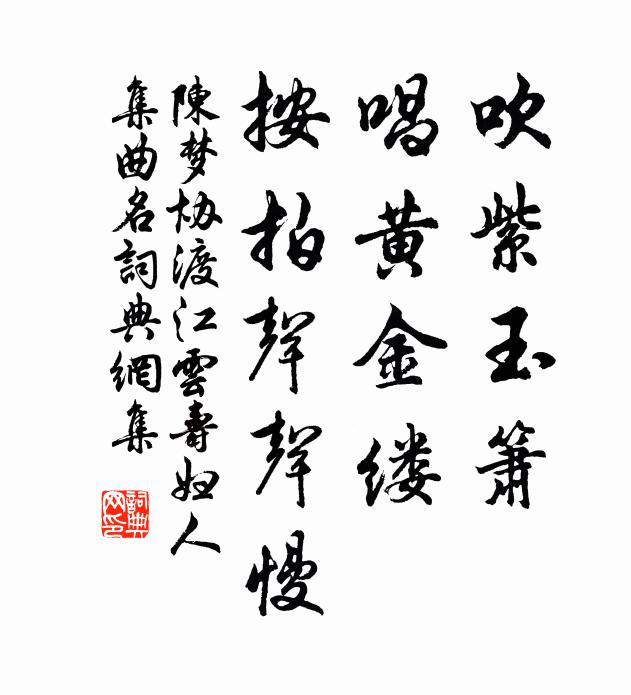 吹紫玉箫
唱黄金缕
按拍聲聲慢
陳梦协渡江雲壽妇人
集曲名詞典網集
詞典网印